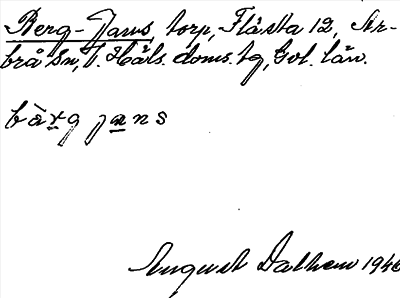 Berg-Jans, torp, Flästa 12, Ar-
brå sn, V. Häls. doms. tg, Gvl. län.
bàrg jans
August Dalhem 1946